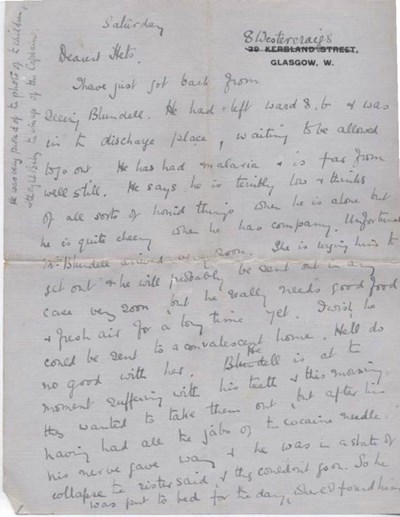 8 Westercraigs
39 KERSLAND STREET,
GLASGOW, W.
Saturday
Dearest Hets.
I have just got back from
seeing Blundell. He had left ward 8.b & was
in the discharge place, waiting to be allowed
to go out. He has had malaria & is far from
well still. He says he is terribly low & thinks
of all sorts of horrid things when he is alone but
he is quite cheery when he has company. Unfortunat
Mrs Blundell arrived very soon. She is urging him to
get out & he will probably be sent out in any
case very soon but he really needs good food
& fresh air for a long time yet. I wish he
could be sent to a convalescent home. He'll do
no good with her. Blundell He is at the
moment suffering with his teeth & this morning
they wanted to take them out but after his
having had all the jabs of the cocaine needle
his nerve gave way & he was in a state of
collapse the sister said, & they couldn't go on. So he
was put to bed for the day, where I found him
He was very proud of the photo of the children,